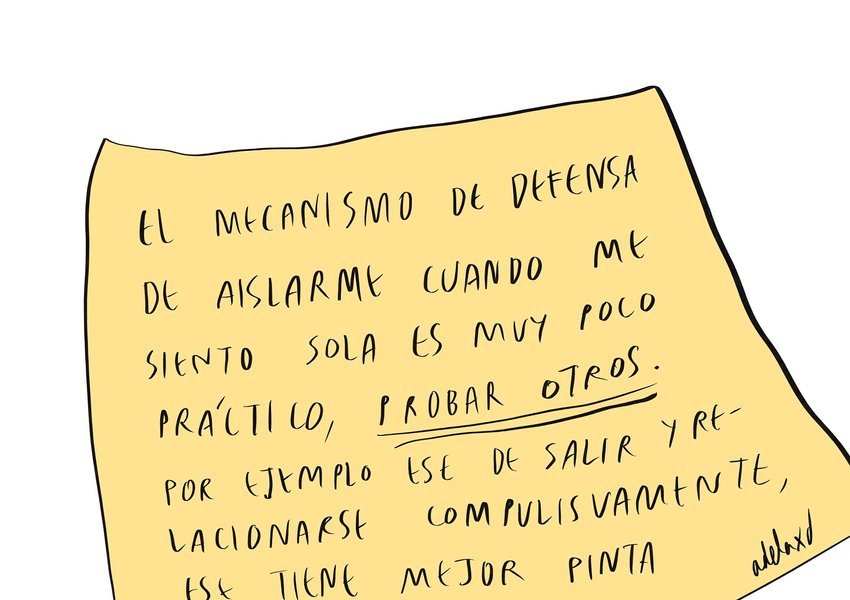 EL MECANISMO DE DEFENSA
DE AISLARME CUANDO ME
SIENTO SOLA ES MUY POCO
PRÁCTICO, PROBAR OTROS.
POR EJEMPLO ESE DE SALIR Y RE-
LACIONARSE COMPULISVAMENTE,
ESE TIENE MEJOR PINTA
adelaxd